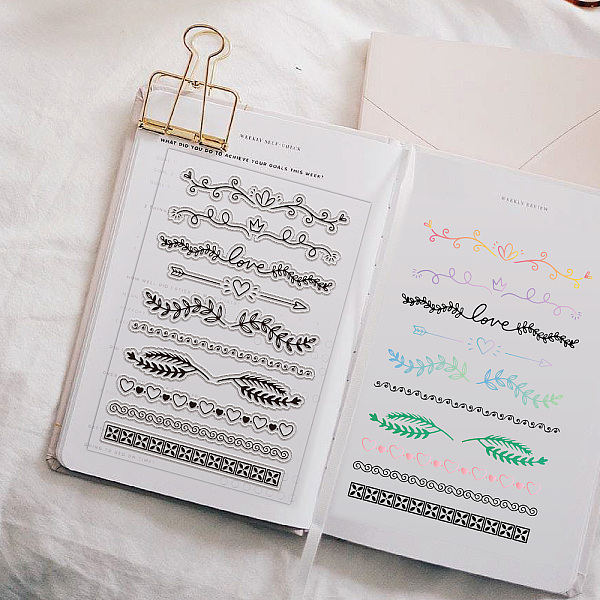 WEEKLY SELF-CHECK
WHAT DID YOU DO TO ACHIEVE YOUR GOALS THIS WEEK?
love
WEEKLY REVIEW
love